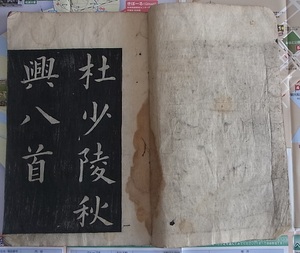 杜少陵秋
興八首